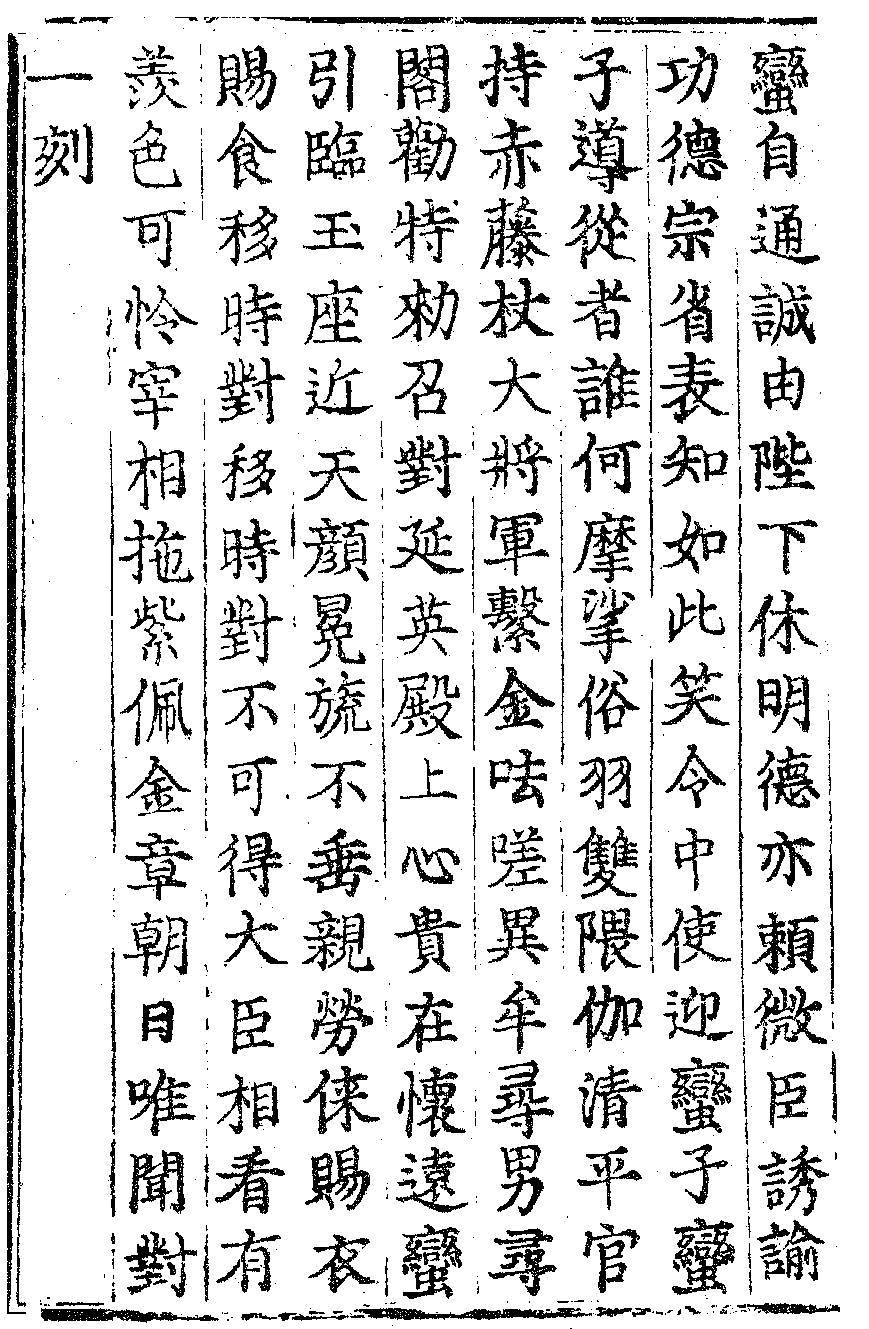 蠻自通誠由陛下休明德亦頼微臣誘諭
功德宗省表知如此笑令中使迎蠻子蠻
子導從者誰何摩挲俗羽雙隈伽清平官
持赤藤杖大將軍繫金呿嗟異牟尋男尋
閣勸特勑召對延英殿上心貴在懷遠蠻
引臨玉座近天顔冕旒不垂親勞倈賜衣
賜食移時對移時對不可得大臣相看有
羨色可怜宰相拖紫佩金章朝日唯聞對
一刻